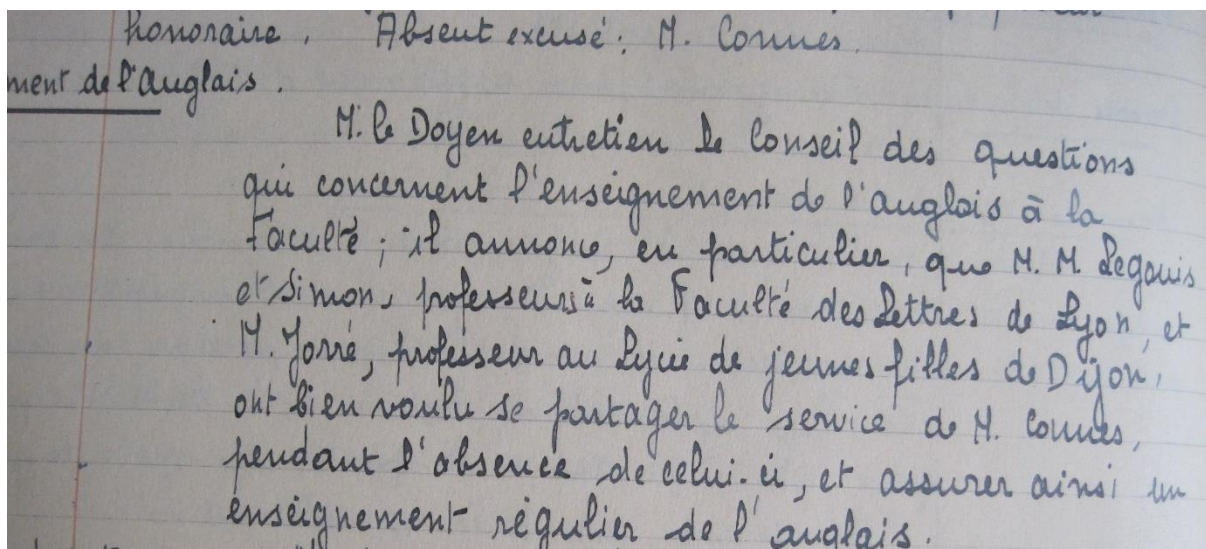 honoraire. Absent excusé: M. Connes.
ment de l'Anglais.
M. le Doyen entretien le Conseil des questions
qui concernent l'enseignement de l'anglais à la
Faculté; il annonce, en particulier, que M. M Legouis
et Simon, professeurs à la Faculté des Lettres de Lyon, et
M. Jorré, professeur au Lycée de jeunes filles de Dijon,
ont bien voulu se partager le service de M. Connes,
pendant l'absence de celui-ci, et assurer ainsi un
enseignement régulier de l'anglais.